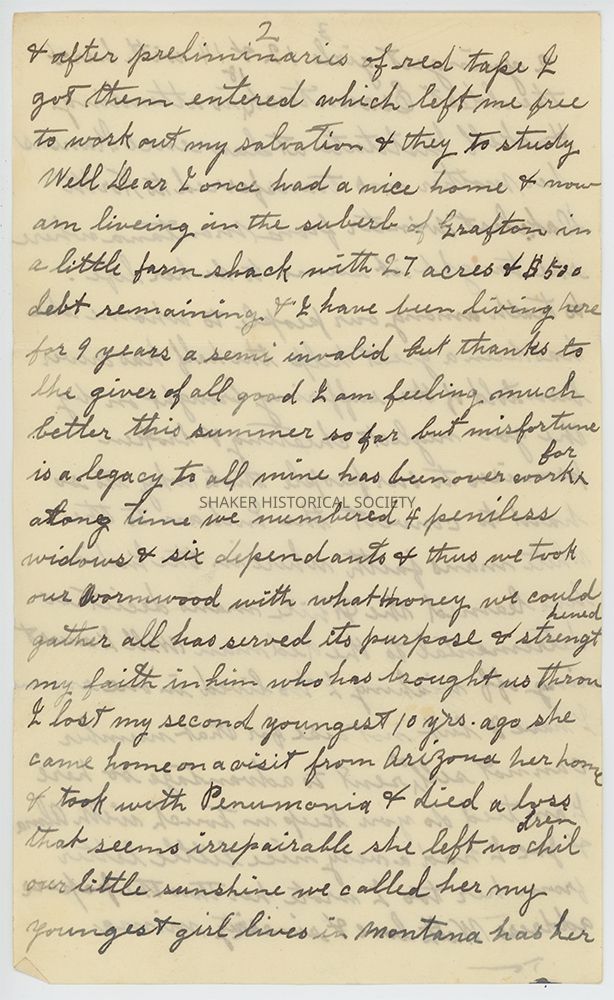 2
& after preliminaries of red tape I
got them entered which left me free
to work out my salvation & they to study
Well Dear I once had a nice home & now
am liveing in the suberb of Grafton in
a little farm shack with 27 acres & $500
debt remaining. & I have been living here
for 9 years a semi invalid but thanks to
the giver of all good I am feeling much
better this summer so far but misfortune
is a legacy to all mine has been over work, for
SHAKER HISTORICAL SOCIETY
along time we numbered 4 peniless
widows & six dependants & thus we took
our Wormwood with what money we could
gather all has served its purpose & strengthened
my faith in him who has brought us throu
I lost my second youngest 10 yrs. ago she
came home on a visit from Arizona her home
& took with Penumonia & died a loss
that seems irrepairable she left no children
our little sunshine we called her my
youngest girl lives in Montana has her